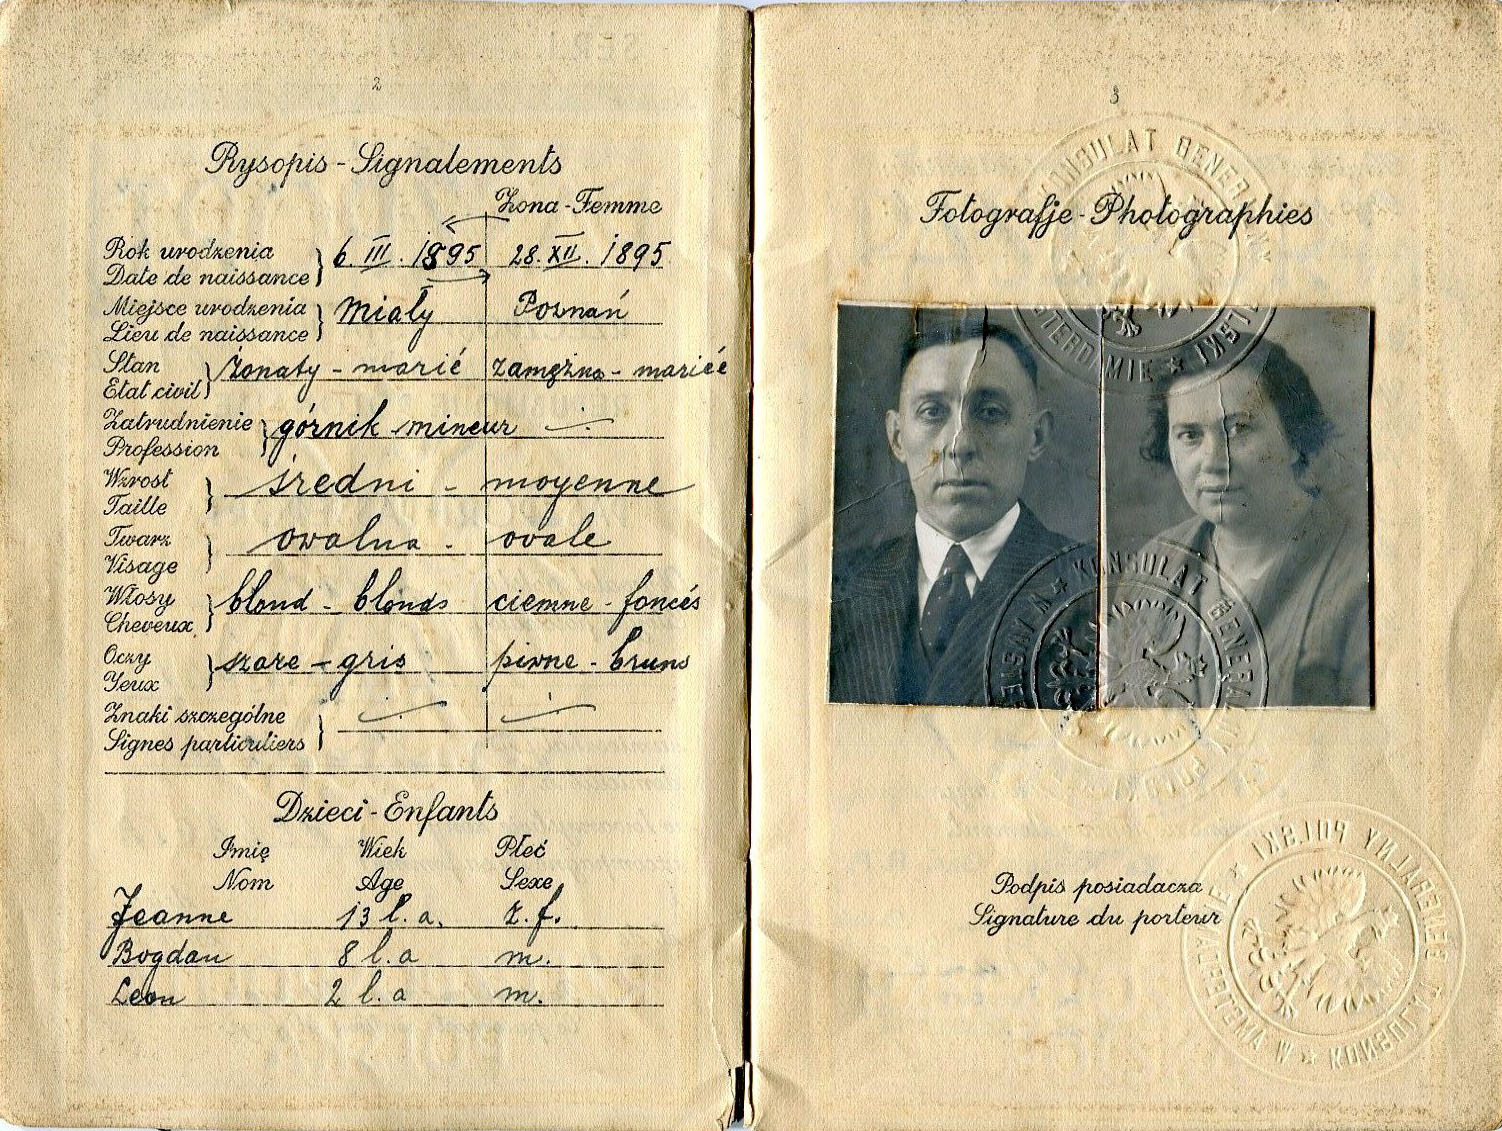 2
Rysopis - Signalements
Żona - Femme
Rok urodzenia
Date de naissance
6. III. 1895 28. XII. 1895
Miejsce urodzenia
Lieu de naissance
Miały Poznań
Stan
Etat civil
żonaty - marié zamężna - mariée
Zatrudnienie
Profession
górnik mineur
Wzrost
Taille
średni - moyenne
Twarz
Visage
owalna - ovale
Włosy
Cheveux
blond - blonds ciemne - foncés
Oczy
Yeux
szare - gris piwne - bruns
Znaki szczególne
Signes particuliers
Dzieci - Enfants
Imię Wiek Płeć
Nom Age Sexe
Jeanne 13 l. a. ż. f.
Bogdan 8 l. a m.
Leon 2 l. a m.
3
Fotografje - Photographies
KONSULAT GENERALNY POLSKI W AMSTERDAMIE
KONSULAT GENERALNY POLSKI W AMSTERDAMIE
Podpis posiadacza
Signature du porteur
KONSULAT GENERALNY POLSKI W AMSTERDAMIE